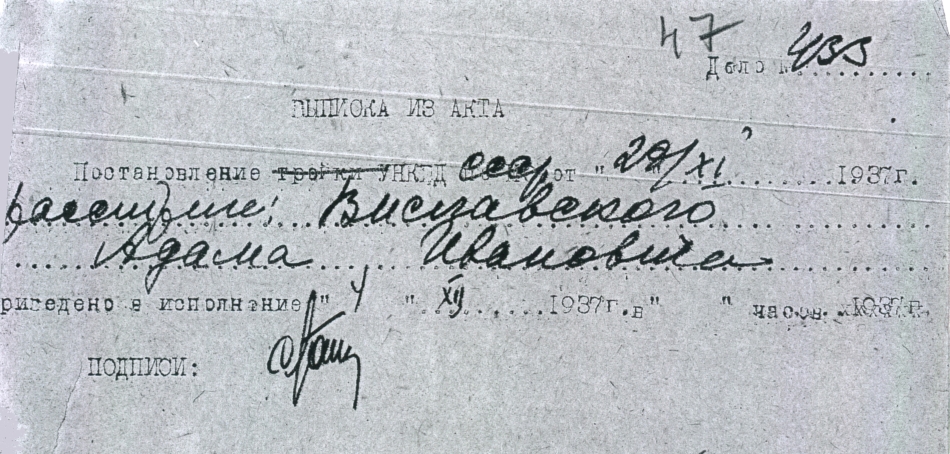 47
Дело № 433
ВЫПИСКА ИЗ АКТА
Постановление тройки УНКВД СССР от "29/XI" 1937г.
расстрелe: Виславского
Адама Ивановича
приведено в исполнение "4" XII 1937г. в " " часов. 1937г.
ПОДПИСИ: